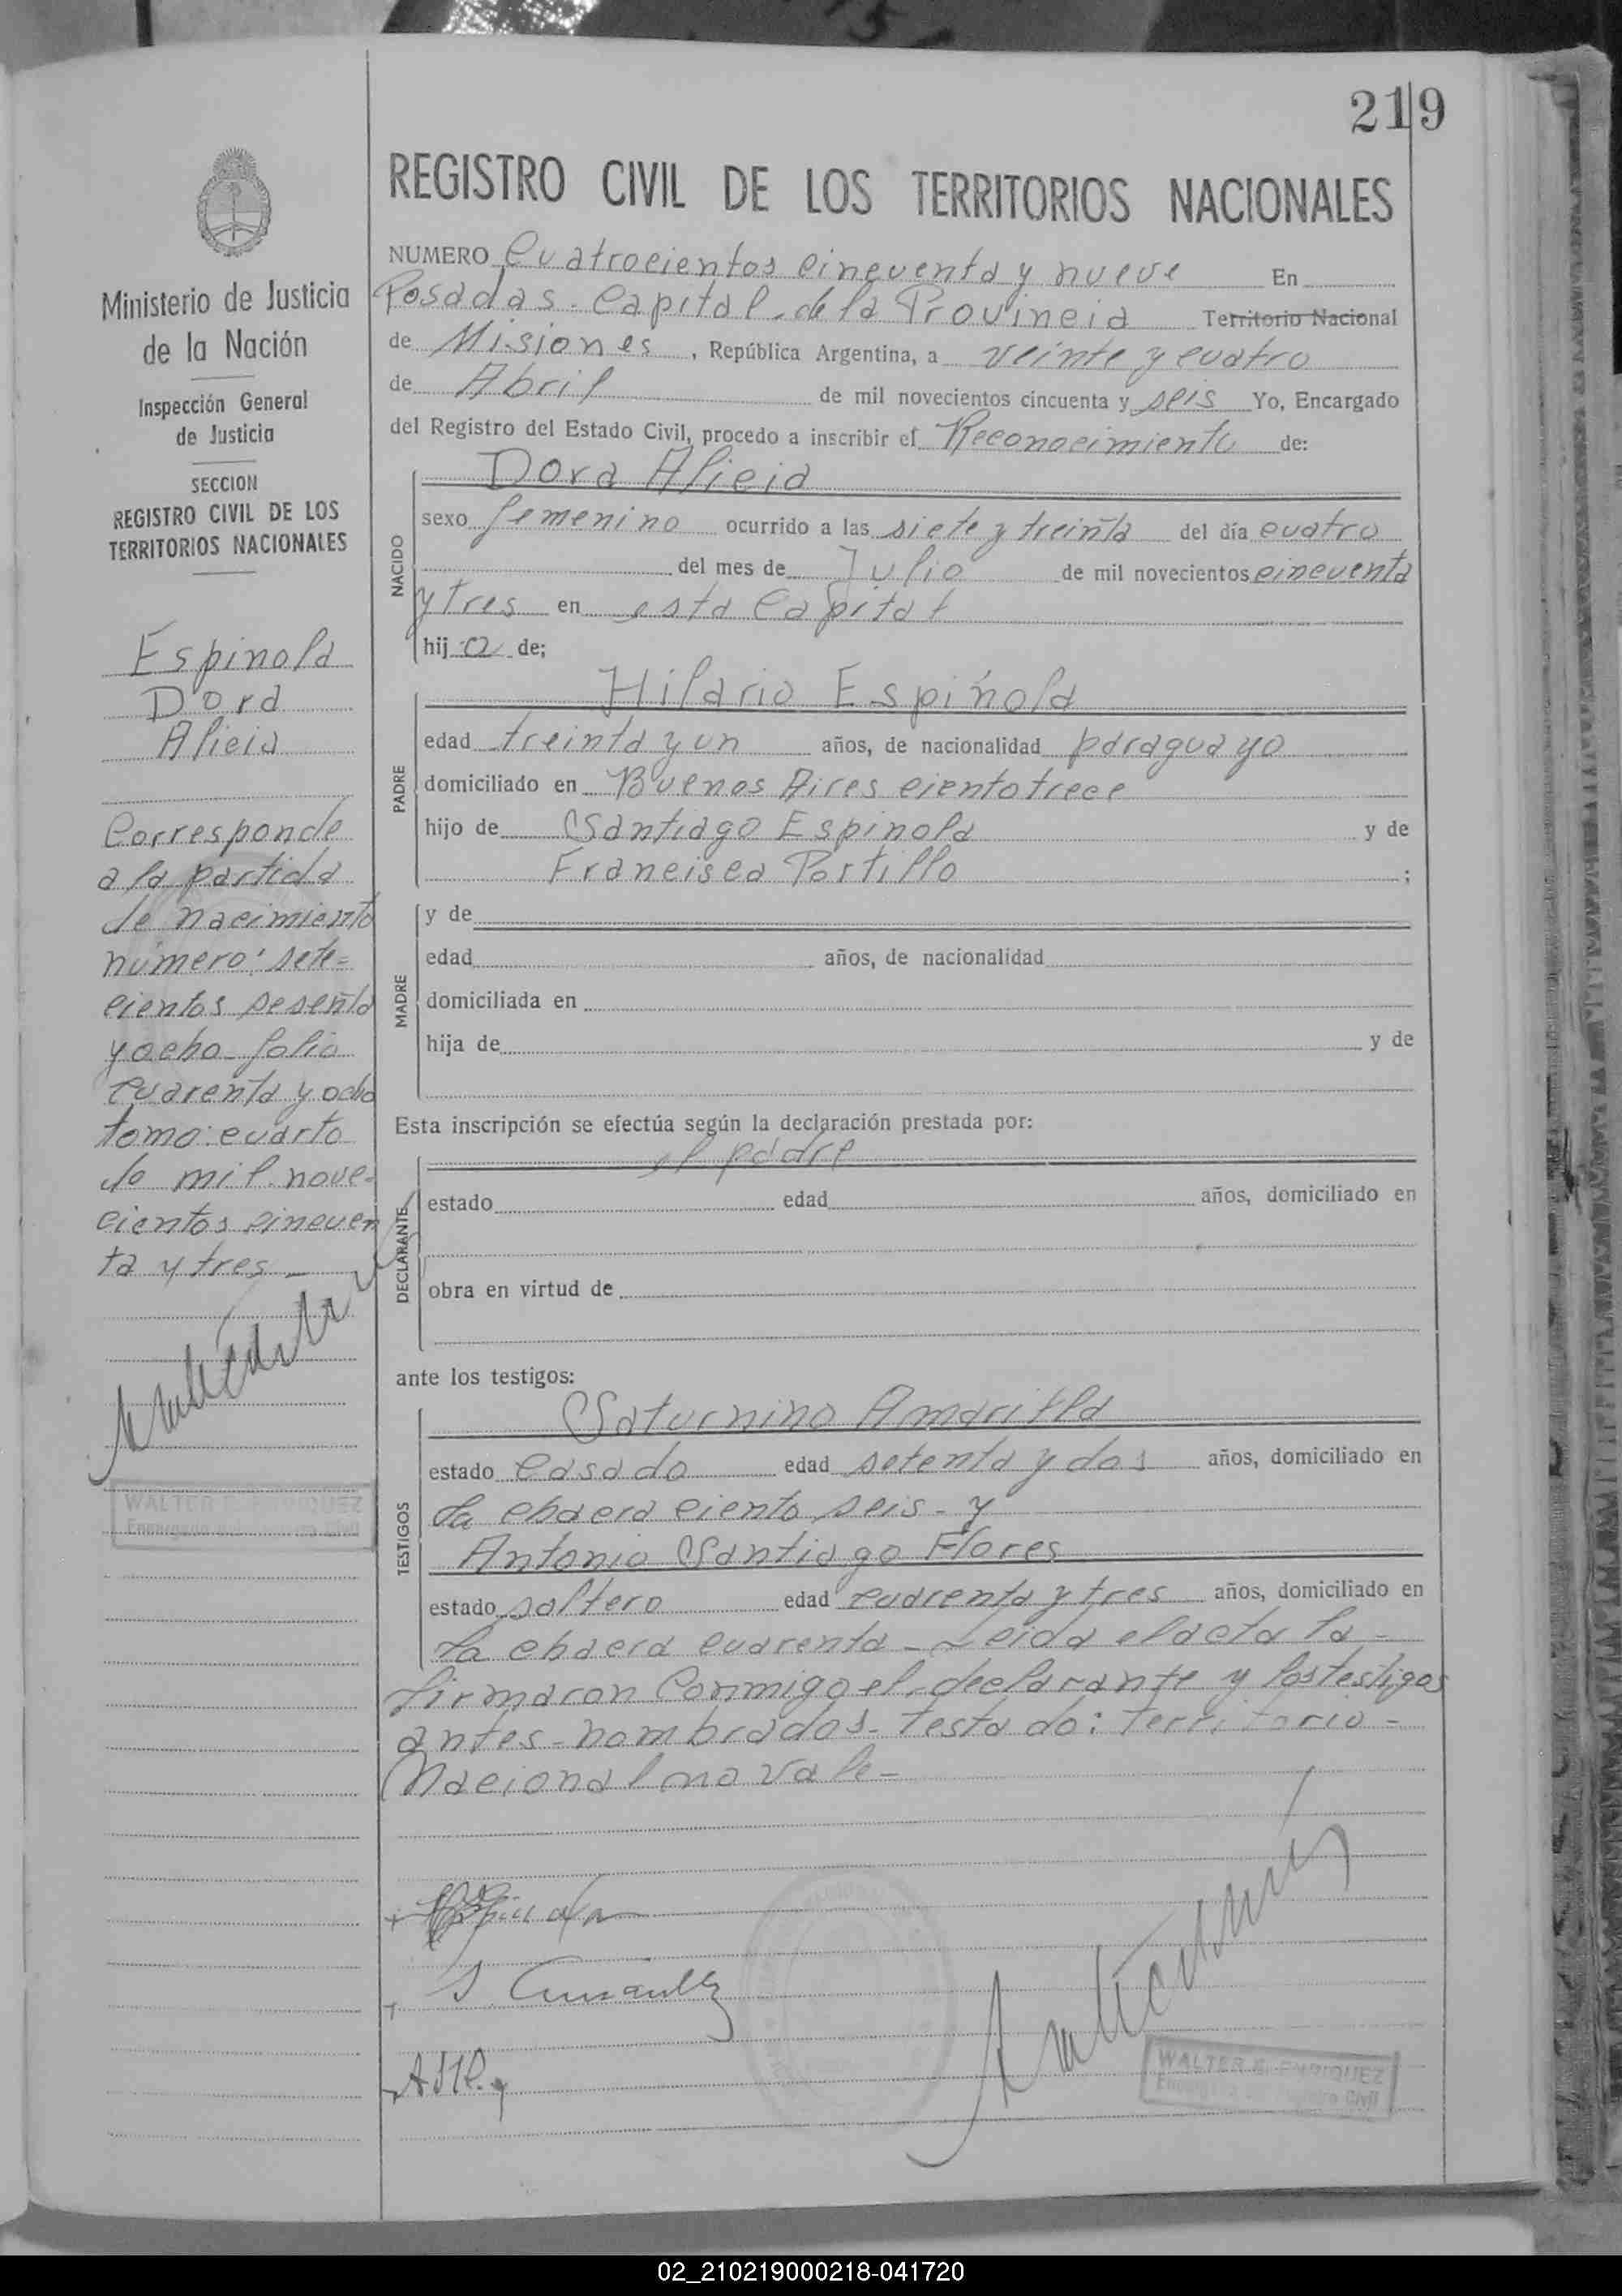 219
REGISTRO CIVIL DE LOS TERRITORIOS NACIONALES
Ministerio de Justicia
de la Nación
Inspección General
de Justicia
SECCION
REGISTRO CIVIL DE LOS
TERRITORIOS NACIONALES
Espinola
Dora
Alicia
Corresponde
a la partida
de nacimiento
número: sete=
cientos sesenta
y ocho folio
cuarenta y ocho
tomo: cuarto
de mil nove=
cientos cincuen
ta y tres
WALTER E. ENRIQUEZ
Encargado del Registro Civil
NUMERO Cuatrocientos cincuenta y nueve En
Posadas. Capital de la Provincia Territorio Nacional
de Misiones, República Argentina, a veinte y cuatro
de Abril de mil novecientos cincuenta y seis Yo, Encargado
del Registro del Estado Civil, procedo a inscribir el Reconocimiento de:
NACIDO
Dora Alicia
sexo femenino ocurrido a las siete y treinta del día cuatro
del mes de Julio de mil novecientos cincuenta
y tres en esta Capital
hija de:
PADRE
Hilario Espínola
edad treinta y un años, de nacionalidad paraguayo
domiciliado en Buenos Aires ciento trece
hijo de Santiago Espinola y de
Francisca Portillo ;
MADRE
y de
edad años, de nacionalidad
domiciliada en
hija de y de
Esta inscripción se efectúa según la declaración prestada por:
DECLARANTE
el padre
estado edad años, domiciliado en
obra en virtud de
ante los testigos:
TESTIGOS
Saturnino Amarilla
estado casado edad setenta y dos años, domiciliado en
la chacra ciento seis - y
Antonio Santiago Flores
estado soltero edad cuarenta y tres años, domiciliado en
la chacra cuarenta - Leida el acta la -
firmaron conmigo el declarante y los testigos
antes nombrados. Testado: Territorio -
Nacional no vale -
WALTER E. ENRIQUEZ
Encargado del Registro Civil
02_210219000218-041720